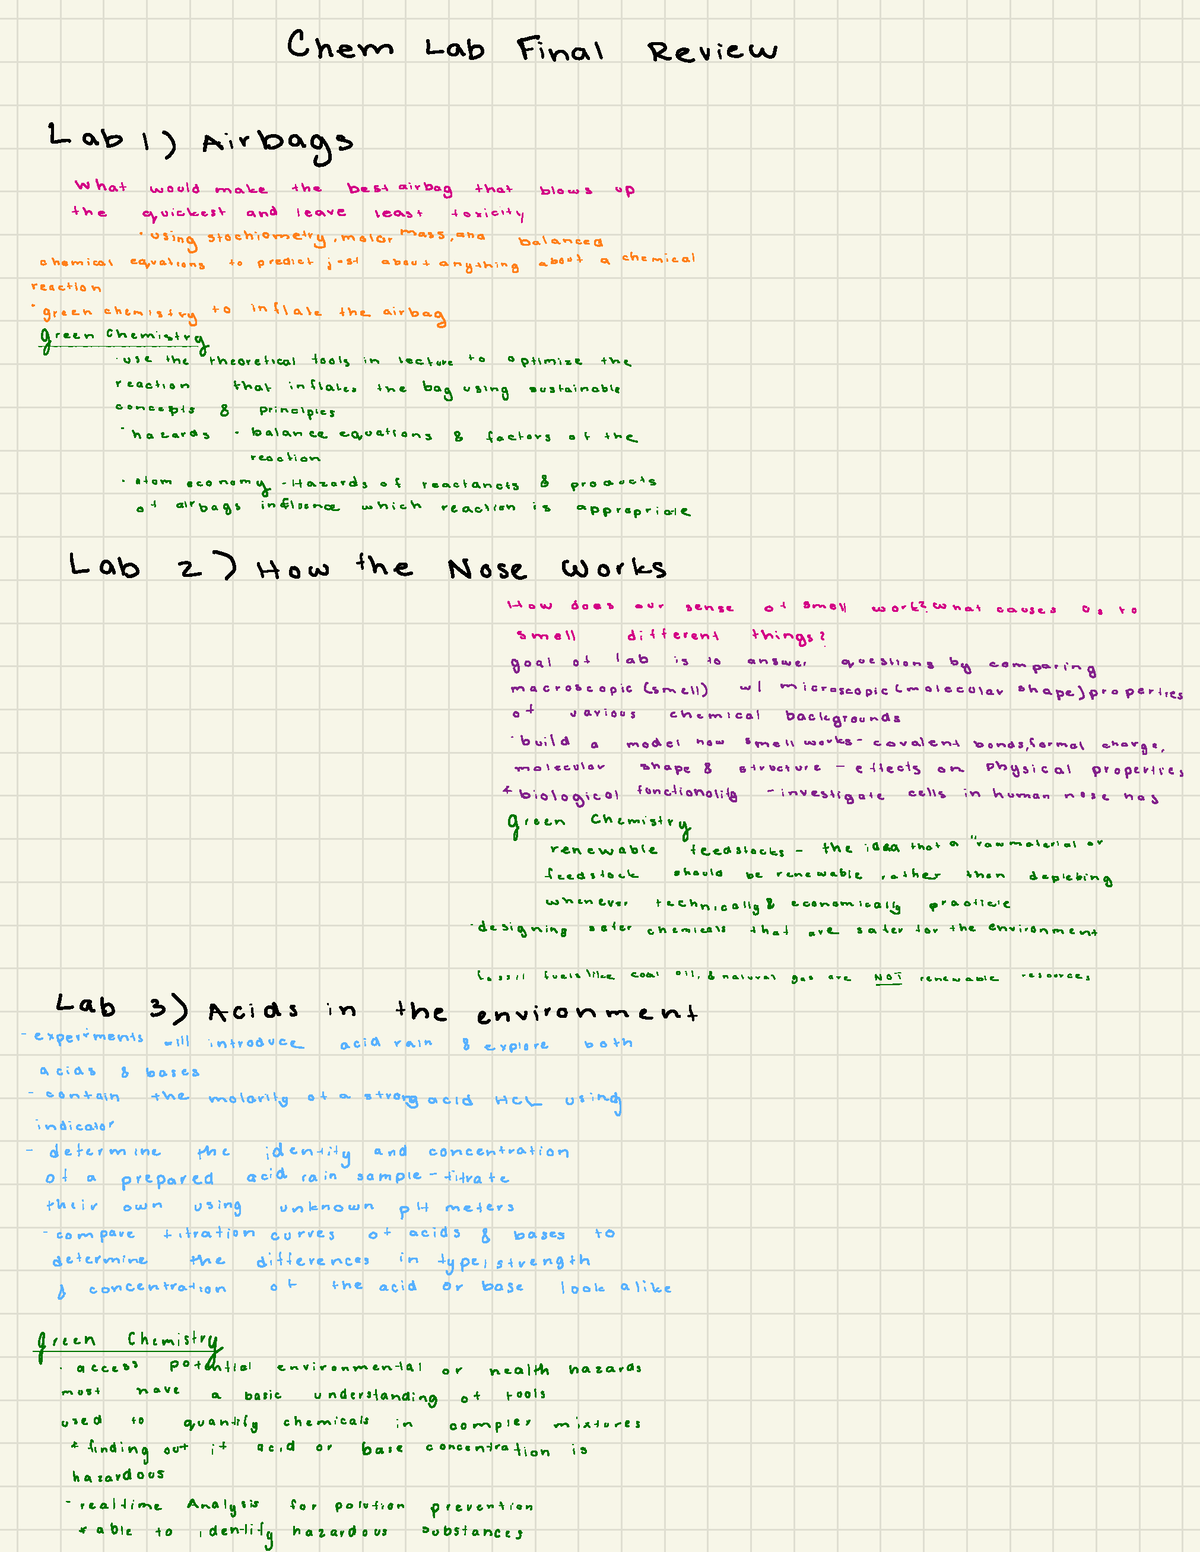 Chem Lab Final Review
Lab 1) Airbags
What would make the best airbag that blows up
the quickest and leave least toxicity
• using stochiometry, molar mass, and balanced
chemical equations to predict just about anything about a chemical
reaction
• green chemistry to inflate the airbag
green Chemistry
• use the theoretical tools in lecture to optimize the
reaction that inflates the bag using sustainable
concepts & principles
• hazards - balance equations & factors of the
reaction
• atom economy - Hazards of reactants & products
of airbags influence which reaction is appropriate
Lab 2) How the Nose Works
How does our sense of smell work? What causes us to
smell different things?
goal of lab is to answer questions by comparing
macroscopic (smell) w/ microscopic (molecular shape) properties
of various chemical backgrounds
• build a model how smell works - covalent bonds, formal charge,
molecular shape & structure - effects on physical properties
* biological functionality - investigate cells in human nose has
green Chemistry
renewable feedstocks - the idea that a "raw material or
feedstock should be renewable rather than depleting
whenever technically & economically practicle
• designing safer chemicals that are safer for the environment
fossil fuels like coal oil, & natural gas are NOT renewable resources
Lab 3) Acids in the environment
- experiments will introduce acid rain & explore both
acids & bases
- contain the molarity of a strong acid HCL using
indicator
- determine the identity and concentration
of a prepared acid rain sample - titrate
their own using unknown pH meters
- compare titration curves of acids & bases to
determine the differences in type, strength
& concentration of the acid or base look alike
green Chemistry
• access potential environmental or health hazards
most have a basic understanding of tools
used to quantify chemicals in complex mixtures
* finding out if acid or base concentration is
hazardous
- realtime Analysis for polution prevention
* able to identify hazardous substances